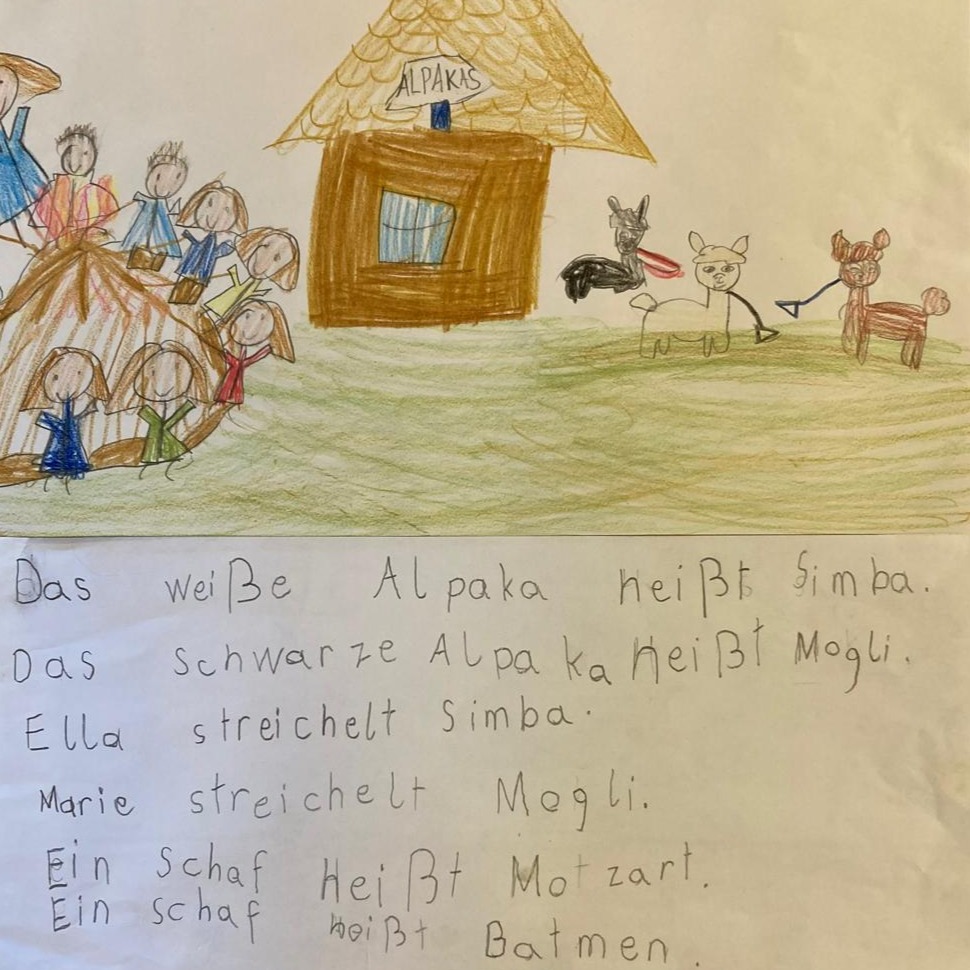 ALPAKAS
Das weiße Alpaka heißt Simba.
Das schwarze Alpaka Heißt Mogli.
Ella streichelt Simba.
Marie streichelt Mogli.
Ein Schaf Heißt Motzart.
Ein schaf heißt Batmen.